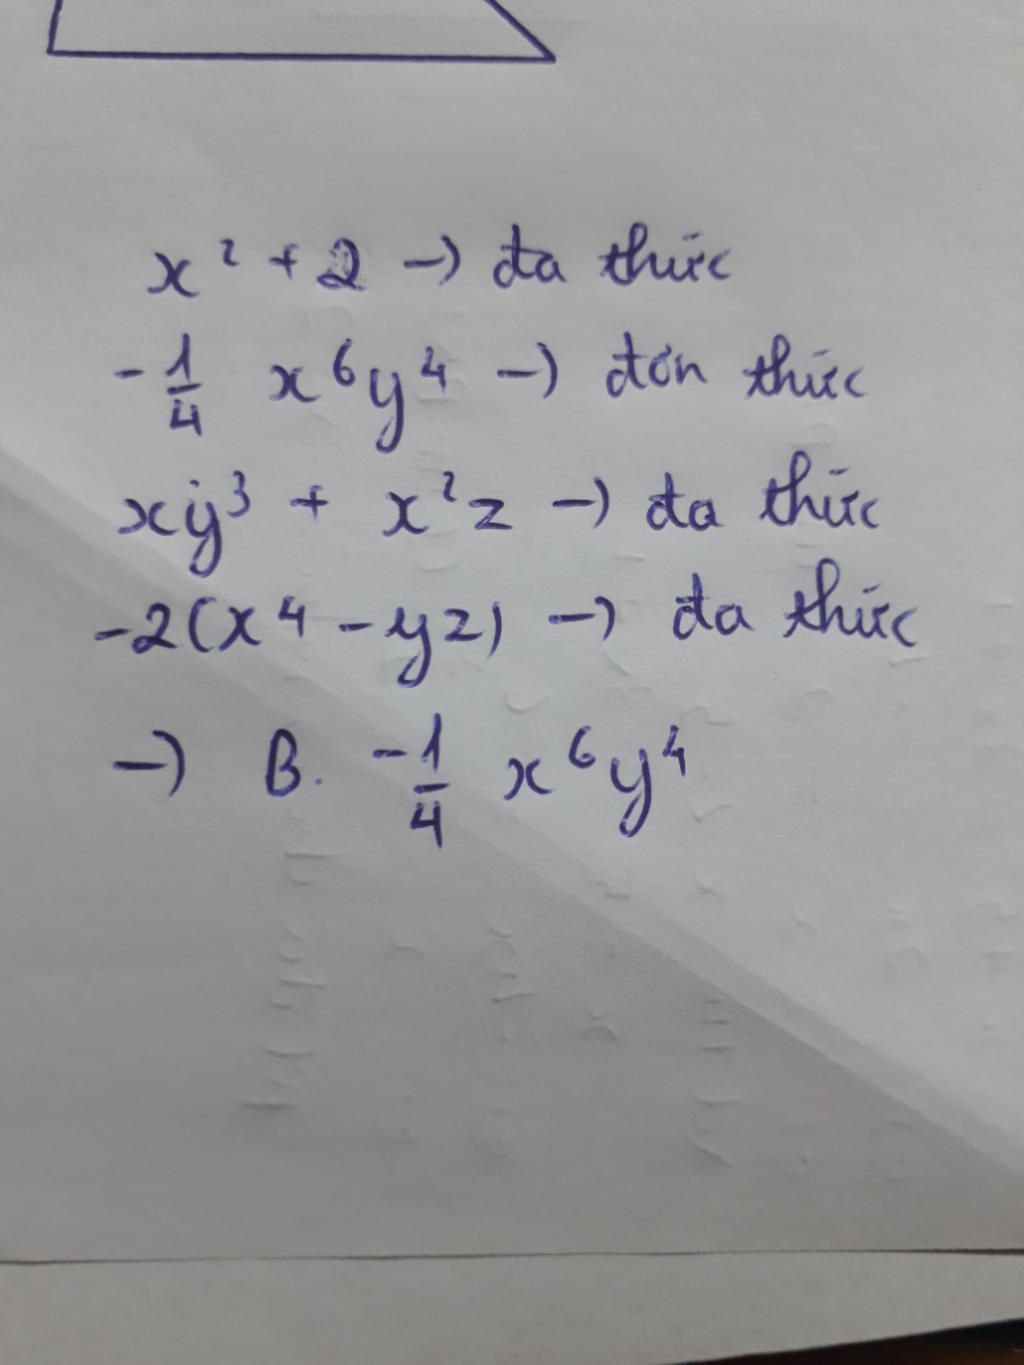 x² + 2 -) đa thức
- 1/4 x⁶y⁴ -) đơn thức
xy³ + x²z -) đa thức
-2(x⁴ - yz) -) đa thức
-) B. -1/4 x⁶y⁴